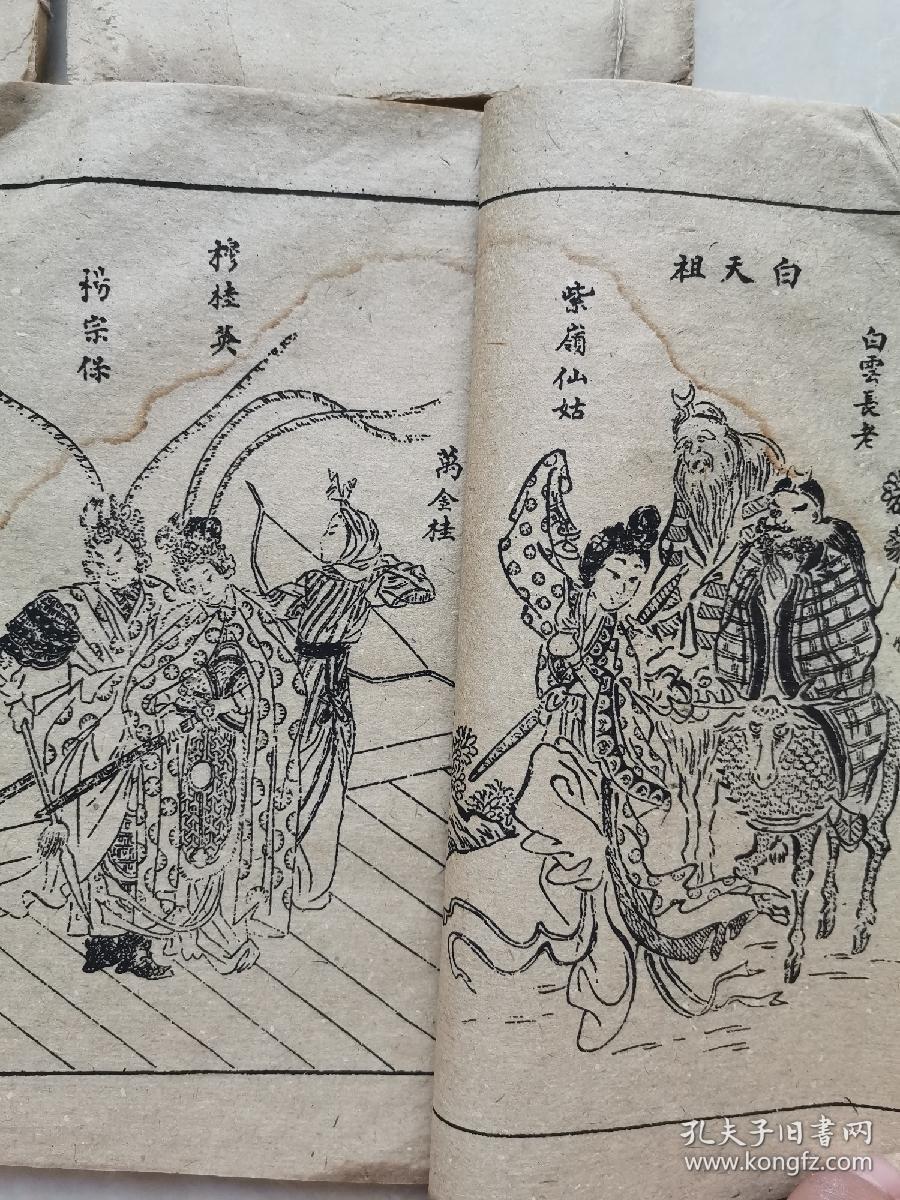 白天祖
白雲長老
紫嶺仙姑
萬金桂
穆桂英
楊宗保
孔夫子旧书网
www.kongfz.com